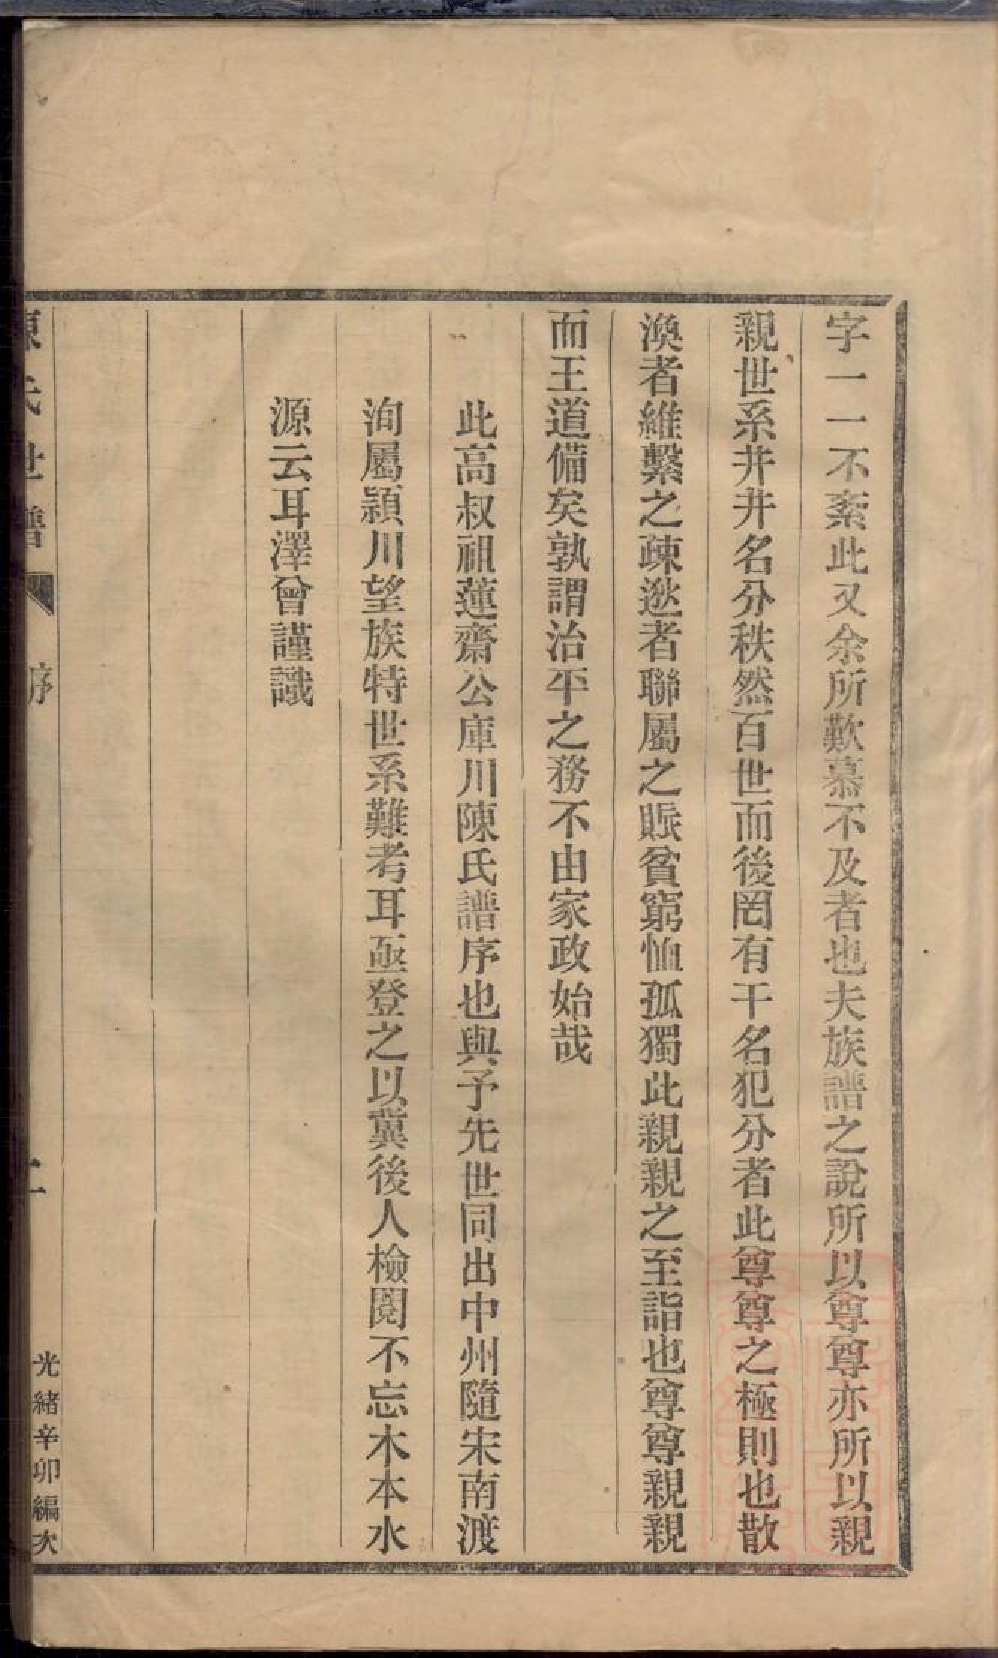 字一一不紊此又余所歎慕不及者也夫族譜之說所以尊尊亦所以親
親世系井井名分秩然百世而後罔有干名犯分者此尊尊之極則也散
渙者維繫之疎逖者聯屬之賑貧窮恤孤獨此親親之至詣也尊尊親親
而王道備矣孰謂治平之務不由家政始哉
此高叔祖蓮齋公庫川陳氏譜序也與予先世同出中州隨宋南渡
洵屬潁川望族特世系難考耳亟登之以冀後人檢閱不忘木本水
源云耳澤曾謹識
陳氏世譜
序
二
光緒辛卯編次